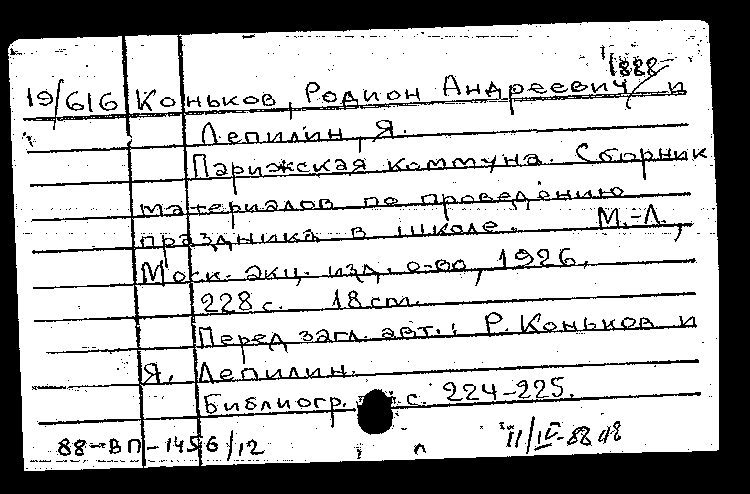 1888
19/616 Коньков, Родион Андреевич и
Лепилин, Я.
Парижская коммуна. Сборник
материалов по проведению
праздника в школе. М.-Л.,
Моск. акц. изд. о-во, 1926.
228 с. 18 cm.
Перед загл. авт.: Р. Коньков и
Я. Лепилин.
Библиогр. с. 224-225.
88-ВП-1456/12 п II/IV-88